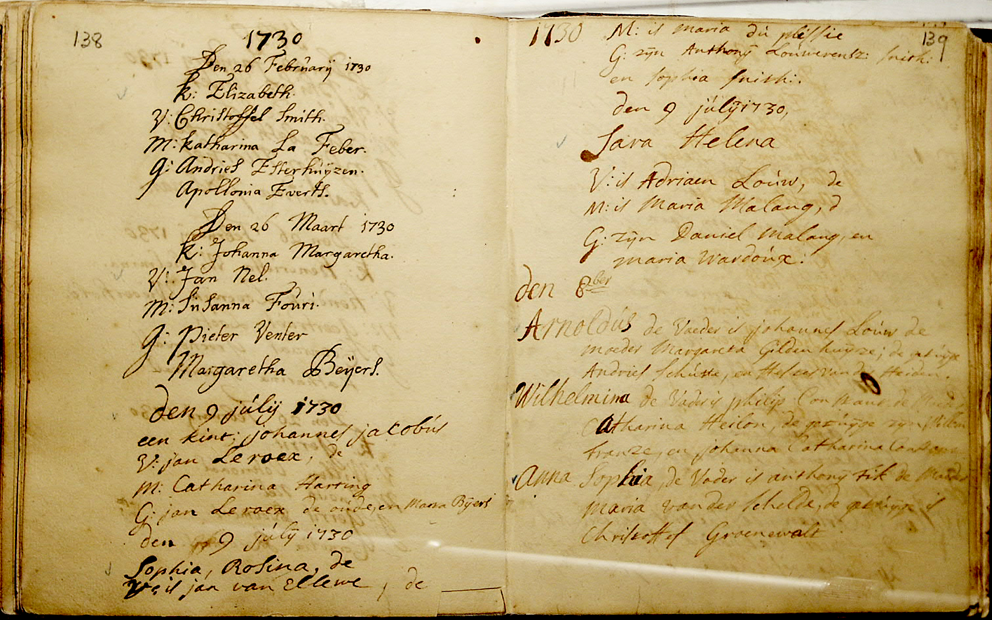 138
1730
Den 26 Februarij 1730
K: Elizabeth.
V: Christoffel Smith.
M: Katharina La Feber.
G: Andries Esterhuijzen.
Apollonia Everts.
Den 26 Maart 1730
K: Johanna Margaretha.
V: Jan Nel.
M: Susanna Fouri.
G: Pieter Venter
Margaretha Beijers.
den 9 julij 1730
een kint: johannes jacobus
V: jan Leroex, de
M: Catharina Harting
G: jan Leroex de oude, en Maria Bijers
den 9 julij 1730
Sophia, Rosina, de
V: is jan van Ellewe, de
1730
139
M: is maria du plessie
G: zyn Anthony Louwerentz: smith:
en sophia smith:
den 9 july 1730,
Sara Helena
V: is Adriaen Louw, de
M: is Maria Malang, d
G: zyn Daniel Malang, en
maria Wardoux:
den 8ber
Arnoldus de Vader is johannes Louw de
moeder Margareta Gildenhuyze, de
Andries Schutte, en van der Heiden.
Wilhelmina de Vader is philip Constans, de
Catharina Heilon, de getuyge zyn
franze, en johanna Catharina
Anna Sophia, de Vader is anthony de Moeder
Maria van der Schelde, de getuyge is
Christoffel Groenewalt